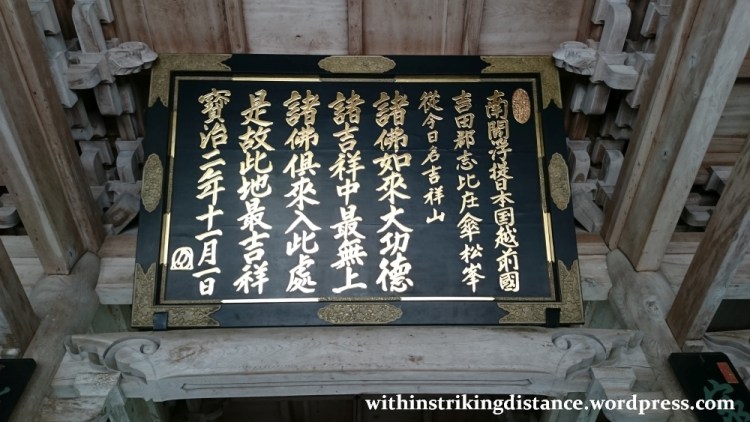 南閻浮提日本国越前國
吉田郡志比庄傘松峯
從今日名吉祥山
諸佛如来大功德
諸吉祥中最無上
諸佛俱来入此處
是故此地最吉祥
寶治二年十一月一日
withinstrikingdistance.wordpress.com